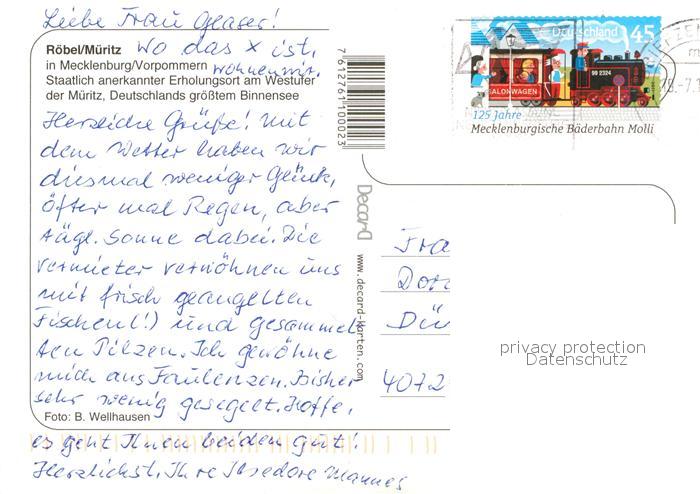 Liebe Frau Glaser!
Röbel/Müritz wo das x ist,
in Mecklenburg/Vorpommern wohnen wir.
Staatlich anerkannter Erholungsort am Westufer
der Müritz, Deutschlands größtem Binnensee
Herzliche Grüße! Mit
dem Wetter haben wir
diesmal weniger Glück,
öfter mal Regen, aber
tägl. Sonne dabei. Die
Vermieter verwöhnen uns
mit frisch geangelten
Fischen(!) und gesammel
ten Pilzen. Ich gewöhne
mich ans Faulenzen. Bisher
sehr wenig gesegelt. Hoffe,
Foto: B. Wellhausen
es geht Ihnen beiden gut!
Herzlichst, Ihre Ihsedore Mannes
7 612761 100023
Decard
www.decard-karten.com
Deutschland 45
99 2324
SALONWAGEN
125 Jahre
Mecklenburgische Bäderbahn Molli
Fra
Dor
Dü
4072
privacy protection
Datenschutz